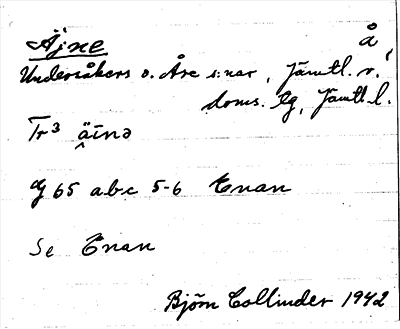 Äjne å
Undersåkers o. Åre s:nar, Jämtl. v.
doms. lg, Jämtl. l.
Tr³ ä̭īnə
G 65 abc 5-6 Enan
Se Enan
Björn Collinder 1942